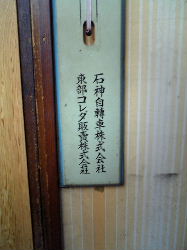 石神自轉車株式会社
東部コレダ販賣株式会社